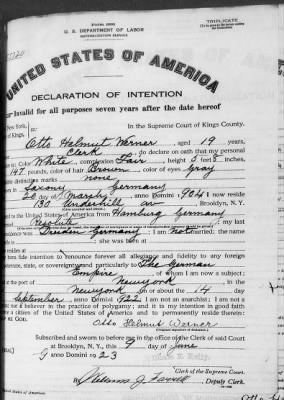 TRIPLICATE
U. S. DEPARTMENT OF LABOR
NATURALIZATION SERVICE
UNITED STATES OF AMERICA
DECLARATION OF INTENTION
Invalid for all purposes seven years after the date hereof
New York, In the Supreme Court of Kings County.
Otto Helmut Werner, aged 19 years,
Clerk, do declare on oath that my personal
is: Color White, complexion Fair, height 5 feet 8 inches,
147 pounds, color of hair Brown, color of eyes Gray
distinctive marks none
Saxony Germany
day of March, anno Domini 1904; I now reside
190 Underhill av, Brooklyn, N. Y.
to the United States of America from Hamburg Germany
Resolute; my last
Dresden Germany; I am not married: the name
she was born at
bona fide intention to renounce forever all allegiance and fidelity to any foreign
state, or sovereignty, and particularly to The German
Empire, of whom I am now a subject;
at the port of New York, in the
New York, on or about the 14 day
September, anno Domini 1922: I am not an anarchist; I am not a
nor a believer in the practice of polygamy; and it is my intention in good faith
a citizen of the United States of America and to permanently reside therein:
GOD.
Otto Helmut Werner
Subscribed and sworn to before me in the office of the Clerk of said Court
at Brooklyn, N. Y., this 9 day of June
anno Domini 1923
Clerk of the Supreme Court.
Deputy Clerk.